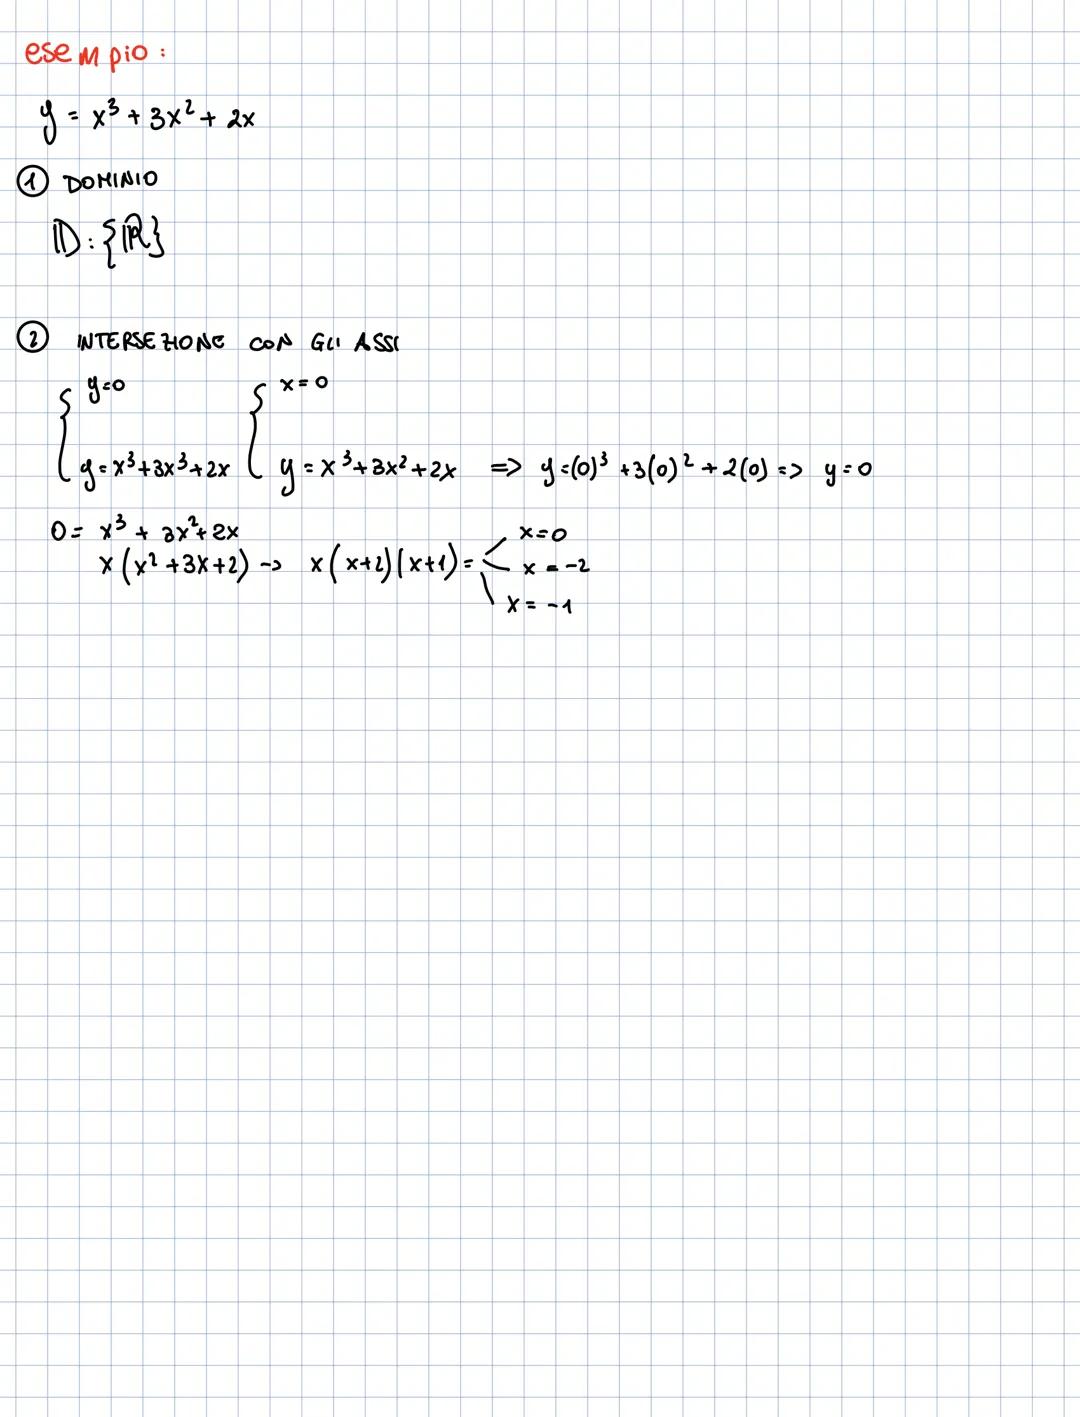 esempio:
y = x³ + 3x² + 2x
① DOMINIO
D: {ℝ}
② INTERSEZIONE CON GLI ASSI
{ y=0 { x=0
y = x³+3x³+2x y = x³+3x²+2x => y=(0)³ +3(0)² + 2(0) => y=0
0 = x³ + 3x²+2x x=0
x(x²+3x+2) -> x(x+2)(x+1) = x = -2
x = -1